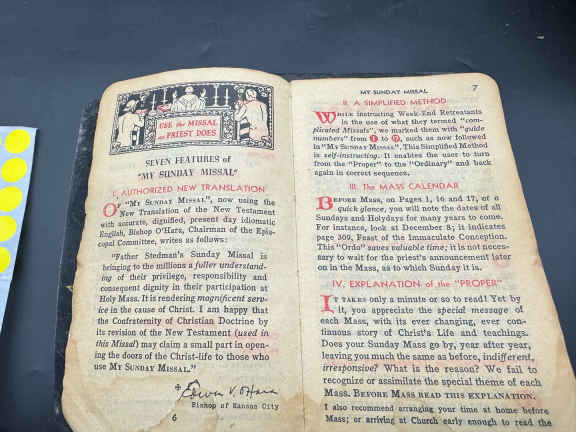 USE the MISSAL
as PRIEST DOES
SEVEN FEATURES of
"MY SUNDAY MISSAL"
I. AUTHORIZED NEW TRANSLATION
OF "MY SUNDAY MISSAL", now using the
New Translation of the New Testament
with accurate, dignified, present day idiomatic
English, Bishop O'Hara, Chairman of the Epis-
copal Committee, writes as follows:
"Father Stedman's Sunday Missal is
bringing to the millions a fuller understand-
ing of their privilege, responsibility and
consequent dignity in their participation at
Holy Mass. It is rendering magnificent serv-
ice in the cause of Christ. I am happy that
the Confraternity of Christian Doctrine by
its revision of the New Testament (used in
this Missal) may claim a small part in open-
ing the doors of the Christ-life to those who
use MY SUNDAY MISSAL."
✠ Edwin V. O'Hara
Bishop of Kansas City
6
MY SUNDAY MISSAL 7
II. A SIMPLIFIED METHOD
WHILE instructing Week-End Retreatants
in the use of what they termed "com-
plicated Missals", we marked them with "guide
numbers" from to , such as now followed
in "MY SUNDAY MISSAL". This Simplified Method
is self-instructing. It enables the user to turn
from the "Proper" to the "Ordinary" and back
again in correct sequence.
III. The MASS CALENDAR
BEFORE Mass, on Pages 1, 16 and 17, or a
quick glance, you will note the dates of all
Sundays and Holydays for many years to come.
For instance, look at December 8; it indicates
page 309, Feast of the Immaculate Conception.
This "Ordo" saves valuable time; it is not neces-
sary to wait for the priest's announcement later
on in the Mass, as to which Sunday it is.
IV. EXPLANATION of the "PROPER"
IT TAKES only a minute or so to read! Yet by
it, you appreciate the special message of
each Mass, with its ever changing, ever con-
tinuous story of Christ's Life and teachings.
Does your Sunday Mass go by, year after year,
leaving you much the same as before, indifferent,
irresponsive? What is the reason? We fail to
recognize or assimilate the special theme of each
Mass. BEFORE MASS READ THIS EXPLANATION.
I also recommend arranging your time at home before
Mass; or arriving at Church early enough to read the